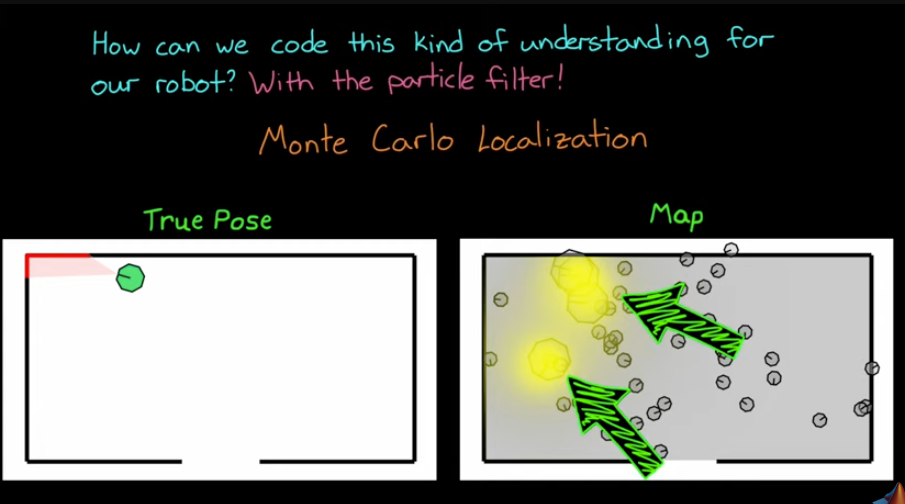 How can we code this kind of understanding for
our robot? With the particle filter!
Monte Carlo Localization
True Pose
Map